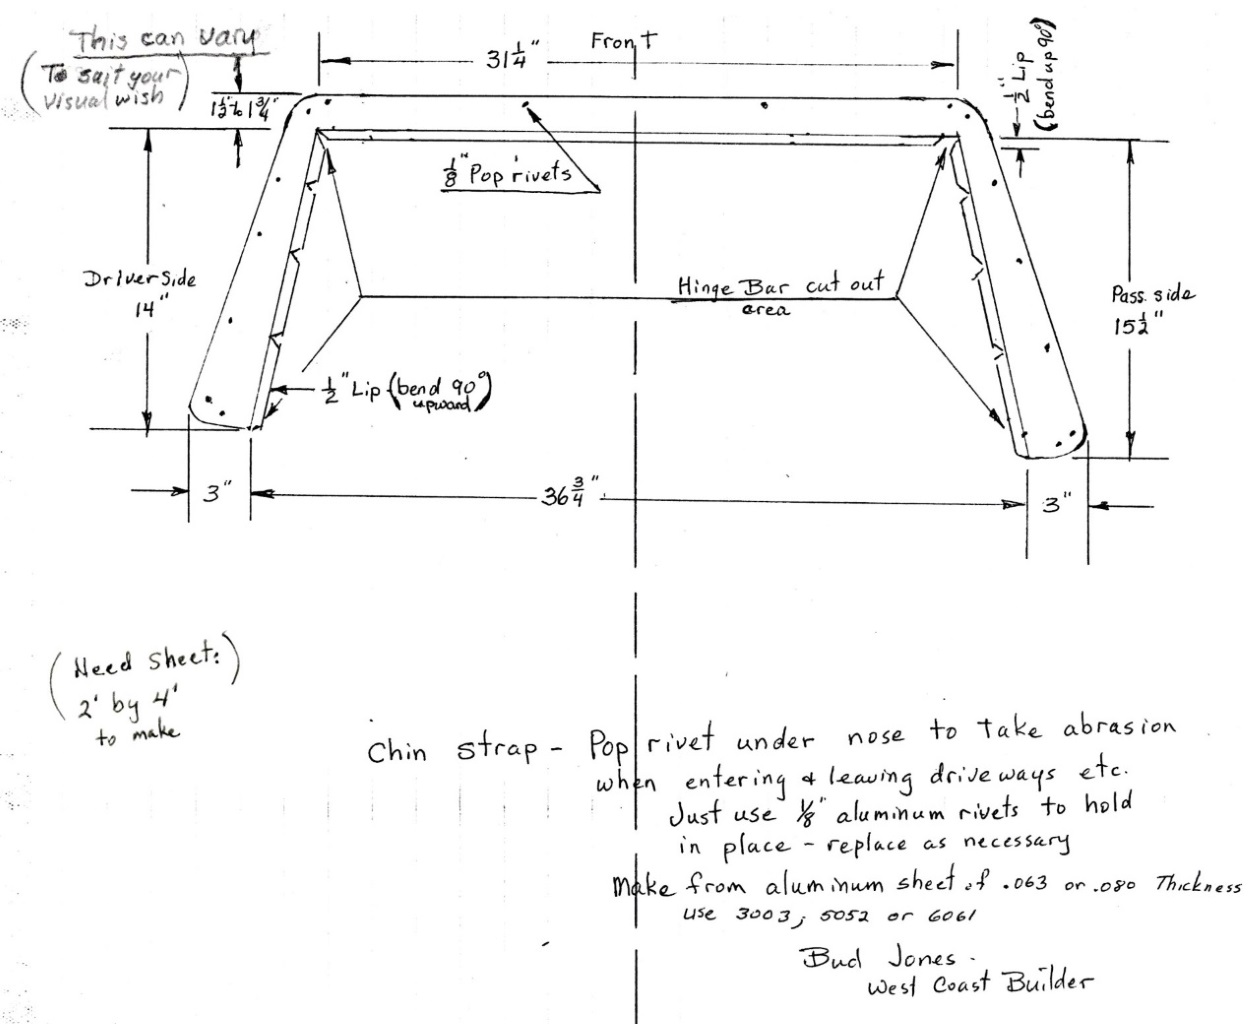 This can vary
(To suit your
visual wish)
1½" to 1¾"
31¼"
Front
½" Lip
(bend up 90°)
⅛" Pop rivets
Driver Side
14"
Hinge Bar cut out
area
Pass. side
15½"
½" Lip (bend 90°
upward)
3"
36¾"
3"
(Need Sheet:)
2' by 4'
to make
Chin strap - Pop rivet under nose to take abrasion
when entering & leaving driveways etc.
Just use ⅛" aluminum rivets to hold
in place - replace as necessary
Make from aluminum sheet of .063 or .080 Thickness
use 3003, 5052 or 6061
Bud Jones.
West Coast Builder